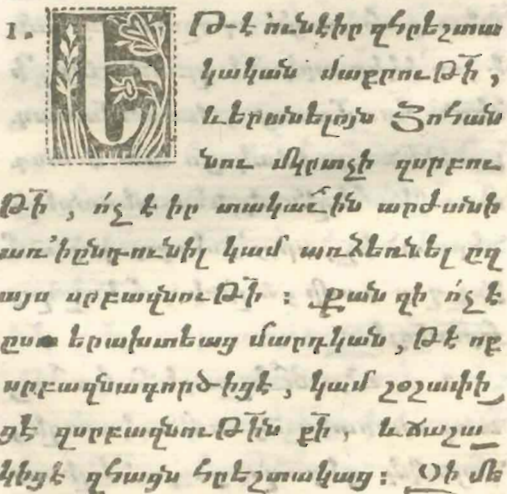 1. Եթէ ունէիր զհրեշտա
կական մաքրութի՛ ,
և երանելոյն Յօհան
նու մկրտչի զսրբու
թի՛ , ո՛չ է իր տակաւին արժանի
առ՚ի ընդունիլ կամ առձեռնել զ
այս սրբազնութի՛ : Քան զի ո՛չ է
ըստ երախտեաց մարդկան , թէ ոք
սրբազնագործիցէ , կամ շօշափի
ցէ զսրբազնութի՛ն քի՛ , և ճաշա
կիցէ զհացն հրեշտակաց : Օի մե